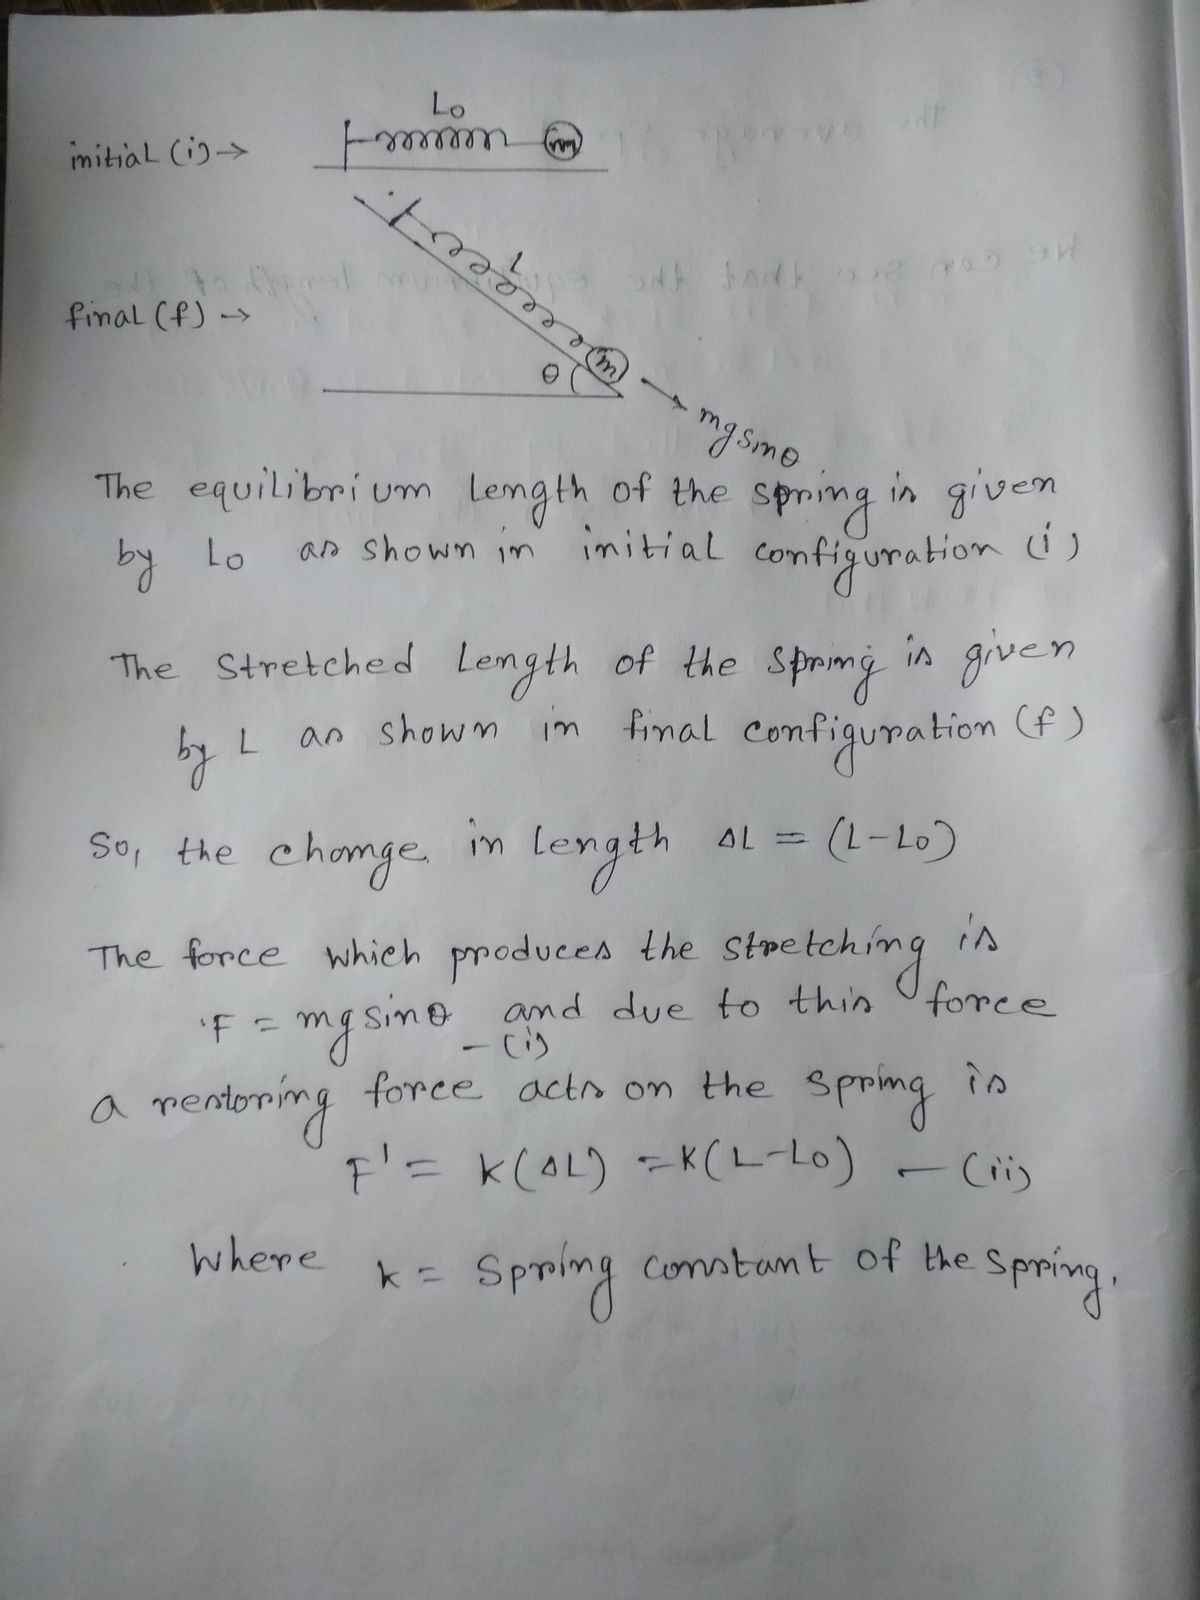 L₀
initial (i) → m
L
final (f) →
θ m
mg sinθ
The equilibrium length of the spring is given
by L₀ as shown in initial configuration (i)
The stretched length of the spring is given
by L as shown in final configuration (f)
So, the change in length ΔL = (L-L₀)
The force which produces the stretching is
F = mg sinθ and due to this force
- (i)
a restoring force acts on the spring is
F' = K(ΔL) = K(L-L₀) - (ii)
Where k = Spring constant of the spring.